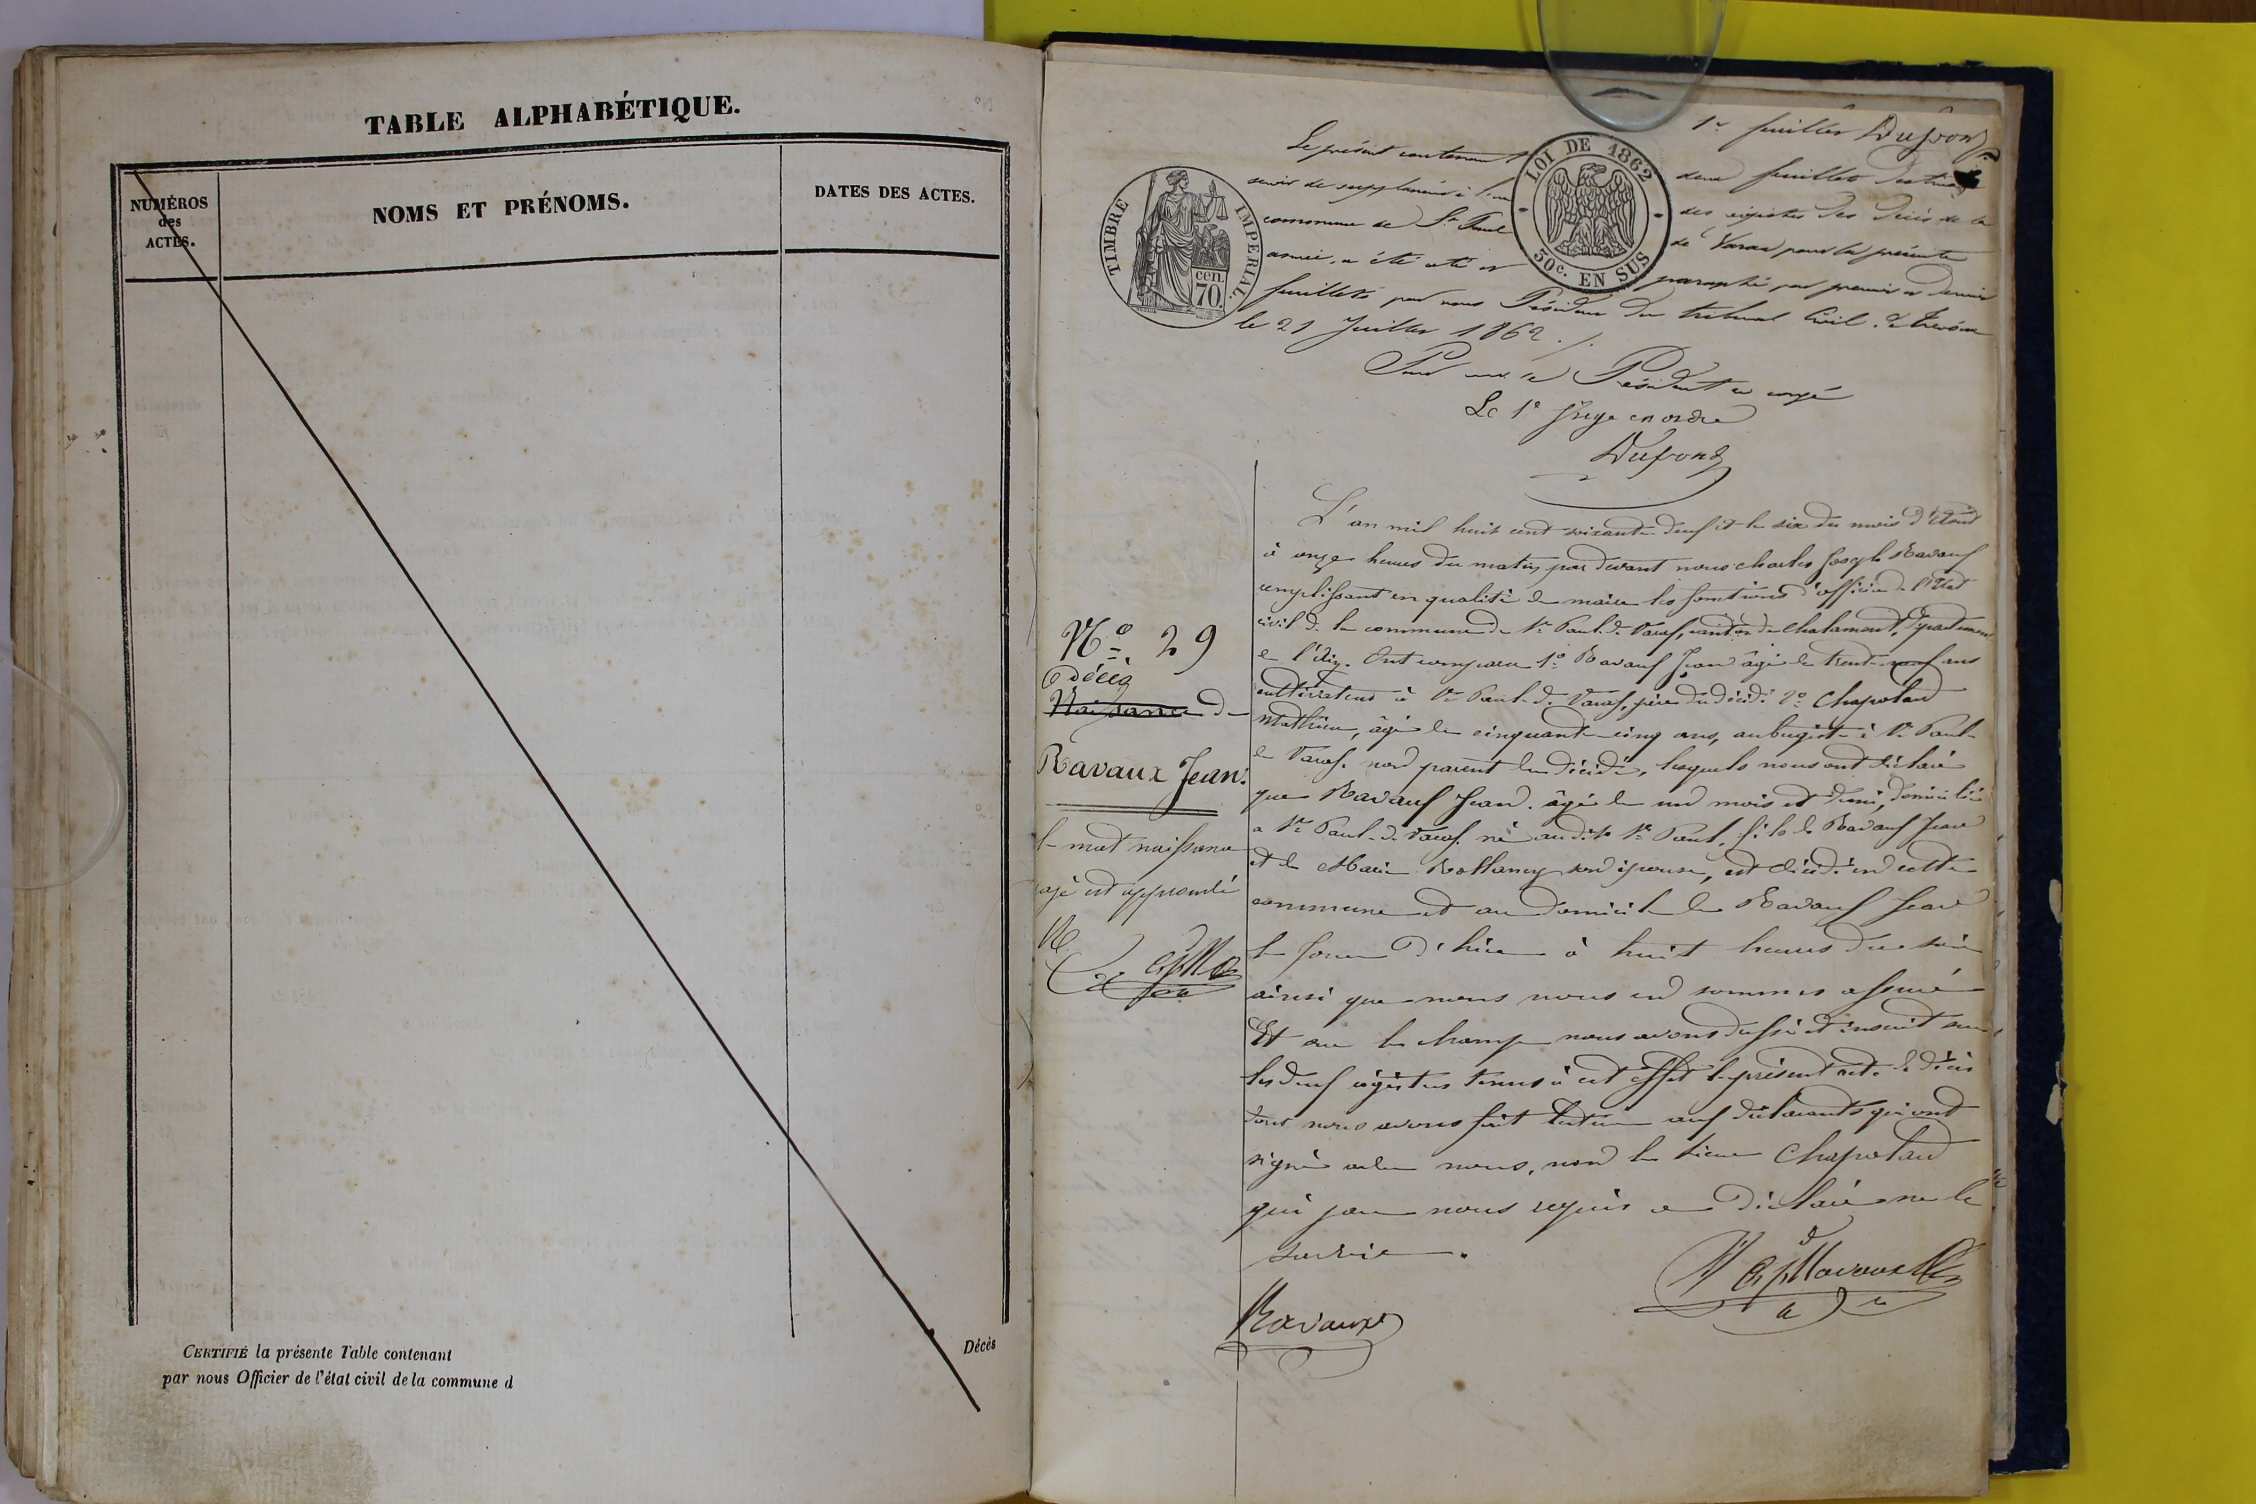 TABLE ALPHABÉTIQUE.
NUMÉROS
des
ACTES.
NOMS ET PRÉNOMS.
DATES DES ACTES.
CERTIFIÉ la présente Table contenant
Décès
par nous Officier de l'état civil de la commune d
1er feuillet Dufond
TIMBRE IMPÉRIAL.
cen.
70.
LOI DE 1862
50c. EN SUS
Le présent contenant deux feuillets destinés
servir de supplément à l'un des registres des décès de la
commune de St Paul de Varax pour la présente
année, a été coté et paraphé par premier et dernier
feuillets par nous Président du tribunal Civil de Trévoux
le 21 Juillet 1862 ./.
Pour le Président en congé
Le 1er Juge en ordre
Dufond
No. 29
Décès
Naissance de
Ravaux Jean.
le mot naissance
rayé est approuvé
L'an mil huit cent soixante-deux et le six du mois d'Août
à onze heures du matin, par devant nous Charles Joseph Ravaux
remplissant en qualité de maire les fonctions d'officier de l'Etat
civil de la commune de St Paul-de-Varax, canton de Chalamont, département
de l'Ain. Ont comparu 1o Ravaux Jean âgé de trente-neuf ans
cultivateur à St Paul-de-Varax, père du décédé 2o Chapoland
Mathieu, âgé de cinquante-cinq ans, aubergiste à St Paul-
de Varax non parent du décédé, lesquels nous ont déclaré
que Ravaux Jean, âgé de un mois et demi, domicilié
à St Paul-de-Varax né audit St Paul, fils de Ravaux Jean
et de Marie son épouse, est décédé en cette
commune et au domicile de Ravaux Jean
le jour d'hier à huit heures du soir
ainsi que nous nous en sommes assuré
Et sur le champ nous avons dressé et inscrit sur
les deux registres tenus à cet effet le présent acte de décès
dont nous avons fait lecture aux déclarants qui ont
signé avec nous, non le sieur Chapoland
qui par nous requis a déclaré ne le
savoir.
Ravaux